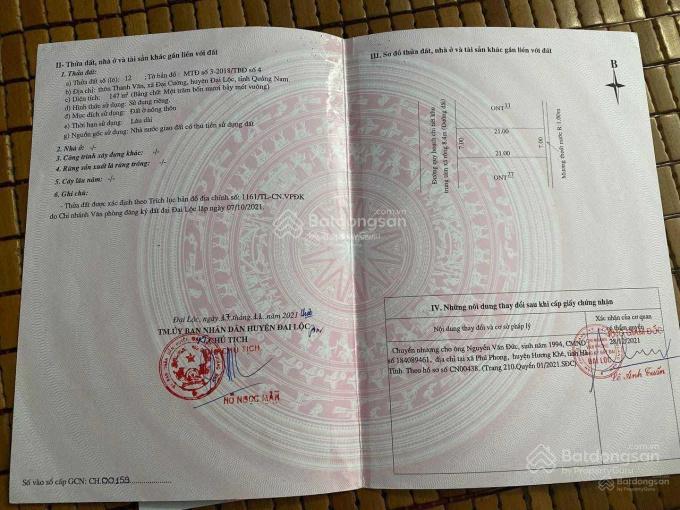 II- Thửa đất, nhà ở và tài sản khác gắn liền với đất
1. Thửa đất:
a) Thửa đất số (lô): 12 ; Tờ bản đồ: MTĐ số 3-2018/TBĐ số 4
b) Địa chỉ: thôn Thanh Vân, xã Đại Cường, huyện Đại Lộc, tỉnh Quảng Nam
c) Diện tích: 147 m² (Bằng chữ: Một trăm bốn mươi bảy mét vuông)
d) Hình thức sử dụng: Sử dụng riêng.
đ) Mục đích sử dụng: Đất ở nông thôn
e) Thời hạn sử dụng: Lâu dài
g) Nguồn gốc sử dụng: Nhà nước giao đất có thu tiền sử dụng đất
2. Nhà ở: -/-
3. Công trình xây dựng khác: -/-
4. Rừng sản xuất là rừng trồng: -/-
5. Cây lâu năm: -/-
6. Ghi chú:
- Thửa đất được xác định theo Trích lục bản đồ địa chính số: 1161/TL-CN.VPĐK
do Chi nhánh Văn phòng đăng ký đất đai Đại Lộc lập ngày 07/10/2021.
Đại Lộc, ngày 17 tháng 11 năm 2021
TM.ỦY BAN NHÂN DÂN HUYỆN ĐẠI LỘC
CHỦ TỊCH
CHỦ TỊCH
HỒ NGỌC MẪN
Số vào sổ cấp GCN: CH.00159
III. Sơ đồ thửa đất, nhà ở và tài sản khác gắn liền với đất
B
Đường quy hoạch chi tiết khu
trung tâm xã rộng 8.4m (Đường đất)
7.00
ONT 13
21.00
21.00
ONT 27
7.00
Mương thoát nước R 1.00m
IV. Những nội dung thay đổi sau khi cấp giấy chứng nhận
Nội dung thay đổi và cơ sở pháp lý
Xác nhận của cơ quan
có thẩm quyền
Chuyển nhượng cho ông Nguyễn Văn Đức, sinh năm 1994, CMND
số 184089461, địa chỉ tại xã Phú Phong, huyện Hương Khê, tỉnh Hà
Tĩnh. Theo hồ sơ số CN00438. (Trang 210.Quyển 01/2021.SĐC)
28/12/2021
GIÁM ĐỐC
ĐẠI LỘC
Võ Anh Tuấn
Batdongsan
.com.vn
by PropertyGuru
Batdongsan
.com.vn
by PropertyGuru
Batdongsan
by PropertyGuru